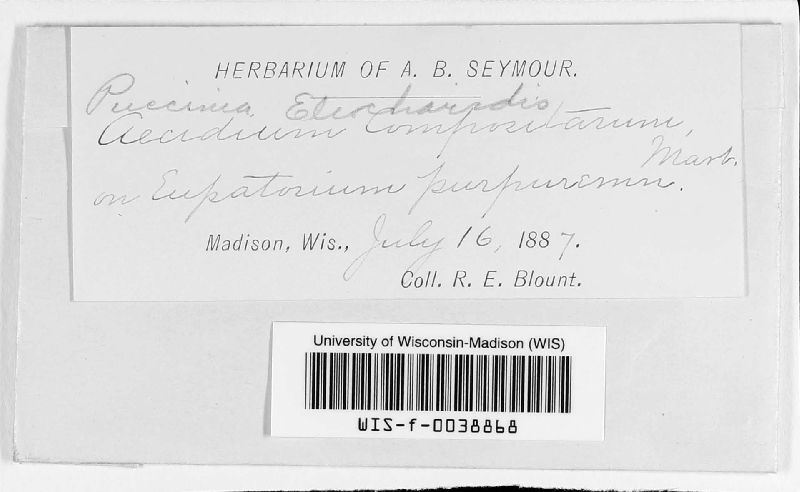 HERBARIUM OF A. B. SEYMOUR.
Puccinia Eleocharidis
Aecidium Compositarum,
Mart.
on Eupatorium purpureum.
Madison, Wis., July 16, 1887.
Coll. R. E. Blount.
University of Wisconsin-Madison (WIS)
WIS-f-0038868